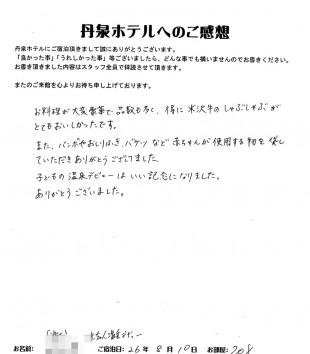 丹泉ホテルへのご感想
丹泉ホテルにご宿泊頂きまして誠にありがとうございます。
「良かった事」「うれしかった事」等ございましたら、どんな事でも構いませんのでお書きください。
お書き頂きました内容はスタッフ全員で拝読させて頂きます。
またのご来館を心よりお待ち申し上げております。
お料理が大変豪華で品数も多く、特に米沢牛のしゃぶしゃぶが
とてもおいしかったです。
また、バンボやおしりふき、バケツなど赤ちゃんが使用する物を貸し
ていただきありがとうございました。
子どもの温泉デビューはいい記念になりました。
ありがとうございました。
お名前:
ご宿泊日:26年8月10日
お部屋:208